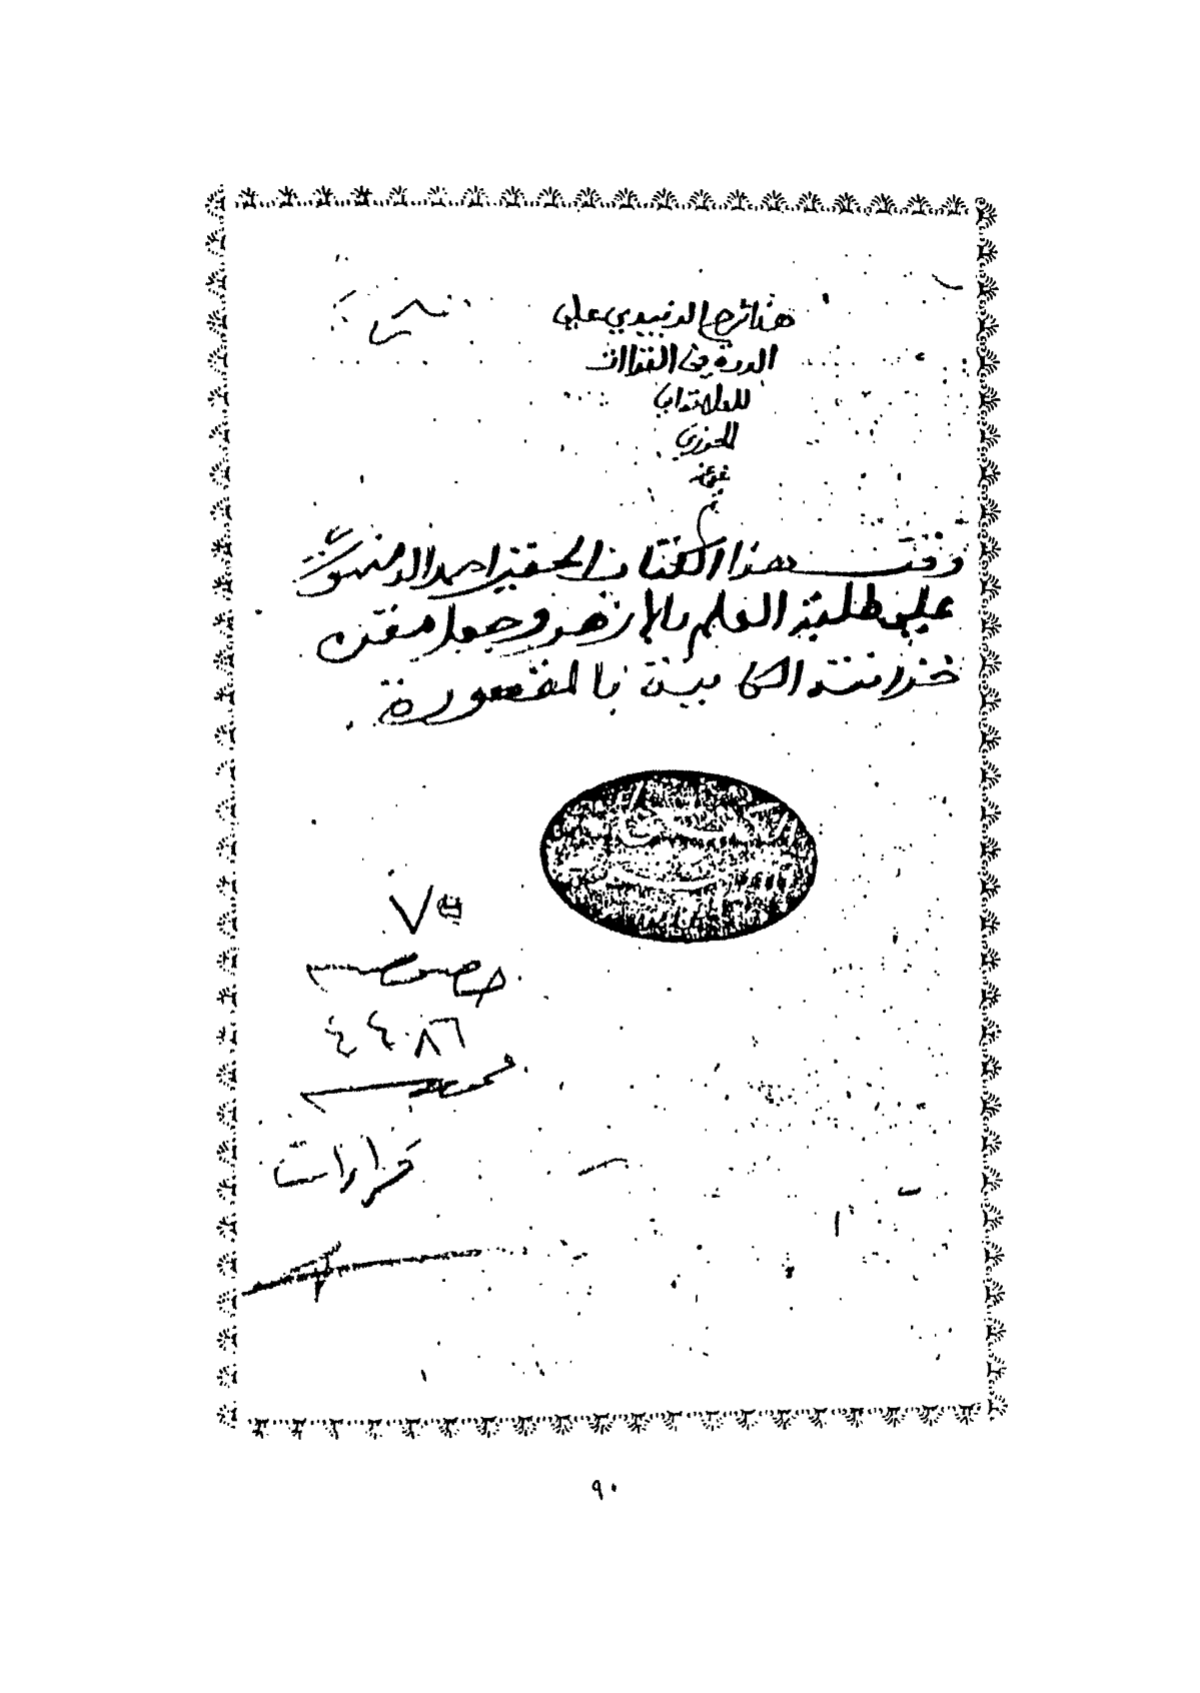 هذا شرح الزبيدي علي
الدرة في القراات
للعلامة ابن
الجزري
وقف هذا الكتاب الحقير احمد الدمنهوري
علي طلبة العلم بالازهر وجعل مقره
خزانته الكاينة بالمقصورة
٧٥
خصوصية
٤٤٠٨٦
عمومية
قراءات
٩٠